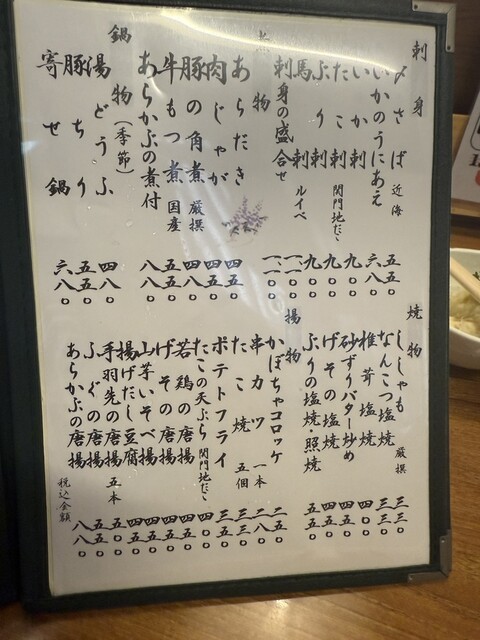 刺身
〆さば 近海 五五〇
いかのうにあえ 六八〇
いか刺 九〇〇
たこ刺 関門地だこ 九〇〇
ぶり刺 九〇〇
馬刺 ルイベ
刺身の盛合せ
煮物
あらだき 四五〇
肉じゃが 四五〇
豚の角煮 厳撰 四八〇
牛もつ煮 国産 五五〇
あらかぶの煮付 八八〇
鍋物(季節)
湯どうふ 四八〇
豚ちり 五五〇
寄せ鍋 六八〇
焼物
ししゃも 三三〇
なんこつ塩焼 厳撰 三三〇
椎茸塩焼
砂ずりバター炒め 四五〇
げその塩焼 四五〇
ぶりの塩焼・照焼 五五〇
揚物
かぼちゃコロッケ 二五〇
串カツ 一本 二八〇
たこ焼 五個 三三〇
ポテトフライ 三三〇
たこの天ぷら 関門地だこ
若鶏の唐揚 四五〇
げその唐揚 四五〇
山芋いそべ揚 四五〇
揚げだし豆腐 四五〇
手羽先の唐揚 五本
ふぐの唐揚 五五〇
あらかぶの唐揚 八八〇
税込金額